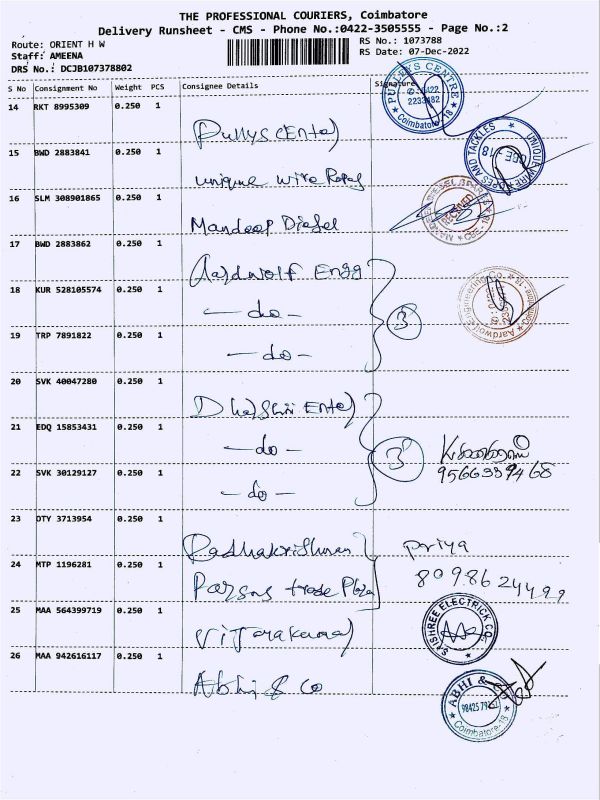 THE PROFESSIONAL COURIERS, Coimbatore
Delivery Runsheet - CMS - Phone No.:0422-3505555 - Page No.:2
Route: ORIENT H W
Staff: AMEENA
DRS No.: DCJB107378802
RS No.: 1073788
RS Date: 07-Dec-2022
S No Consignment No Weight PCS Consignee Details Signature
14 RKT 8995309 0.250 1
PULLEYS CENTRE
0422
Coimbatore-18
15 BWD 2883841 0.250 1
UNIQUE WIRE ROPES AND TACKLES
CBE - 18
unique wire Ropes
16 SLM 308901865 0.250 1
RECEIVED
Mandeep Diesel
17 BWD 2883862 0.250 1
Aardwolf Engg
18 KUR 528105574 0.250 1
- do -
3
Aardwolf Engineering Co.
19 TRP 7891822 0.250 1
- do -
20 SVK 40047280 0.250 1
21 EDQ 15853431 0.250 1
- do -
3
22 SVK 30129127 0.250 1
- do -
23 OTY 3713954 0.250 1
Radhakrishnan
Priya
24 MTP 1196281 0.250 1
Parsns trade Plaza
8098624499
25 MAA 564399719 0.250 1
SAISHREE ELECTRICK CO.
26 MAA 942616117 0.250 1
Abhi & Co
ABHI &
Coimbatore-18